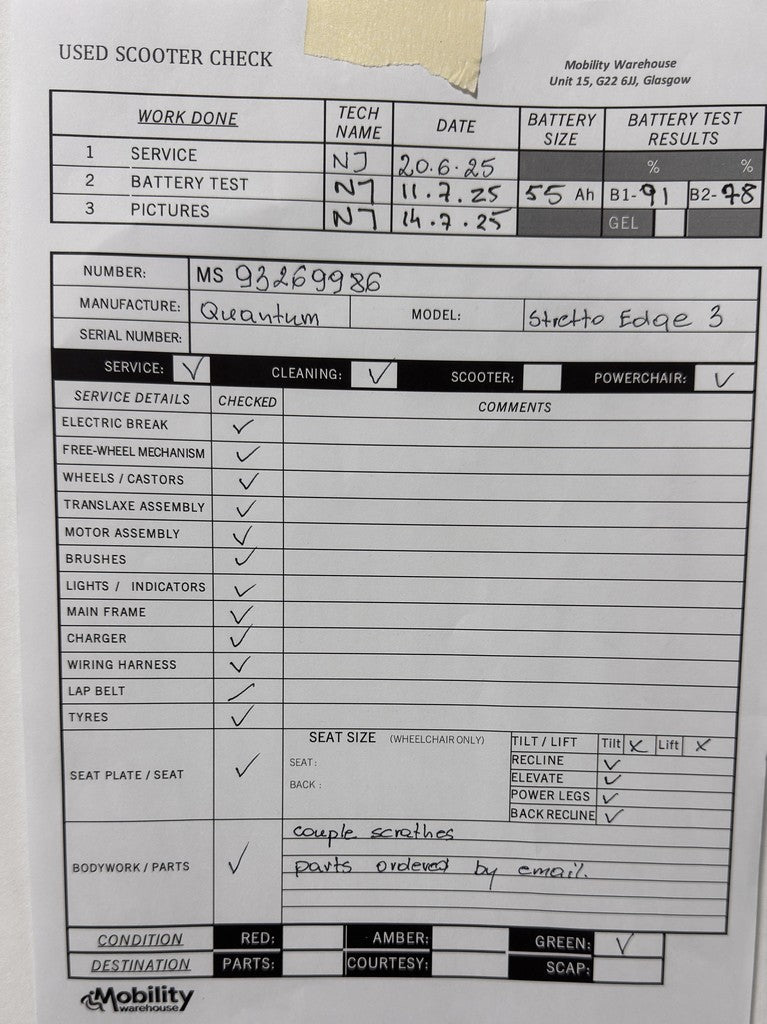 USED SCOOTER CHECK
Mobility Warehouse
Unit 15, G22 6JJ, Glasgow
WORK DONE TECH NAME DATE BATTERY SIZE BATTERY TEST RESULTS
1 SERVICE NJ 20.6.25 % %
2 BATTERY TEST NJ 11.7.25 55 Ah B1-91 B2-78
3 PICTURES NJ 14.7.25 GEL
NUMBER: MS 93269986
MANUFACTURE: Quantum MODEL: Stretto Edge 3
SERIAL NUMBER:
SERVICE: ✓ CLEANING: ✓ SCOOTER: POWERCHAIR: ✓
SERVICE DETAILS CHECKED COMMENTS
ELECTRIC BREAK ✓
FREE-WHEEL MECHANISM ✓
WHEELS / CASTORS ✓
TRANSLAXE ASSEMBLY ✓
MOTOR ASSEMBLY ✓
BRUSHES ✓
LIGHTS / INDICATORS ✓
MAIN FRAME ✓
CHARGER ✓
WIRING HARNESS ✓
LAP BELT /
TYRES ✓
SEAT PLATE / SEAT ✓
SEAT SIZE (WHEELCHAIR ONLY)
SEAT:
BACK:
TILT / LIFT Tilt x Lift x
RECLINE ✓
ELEVATE ✓
POWER LEGS ✓
BACK RECLINE ✓
BODYWORK / PARTS ✓
couple scrathes
parts ordered by email.
CONDITION RED: AMBER: GREEN: ✓
DESTINATION PARTS: COURTESY: SCAP:
Mobility
warehouse